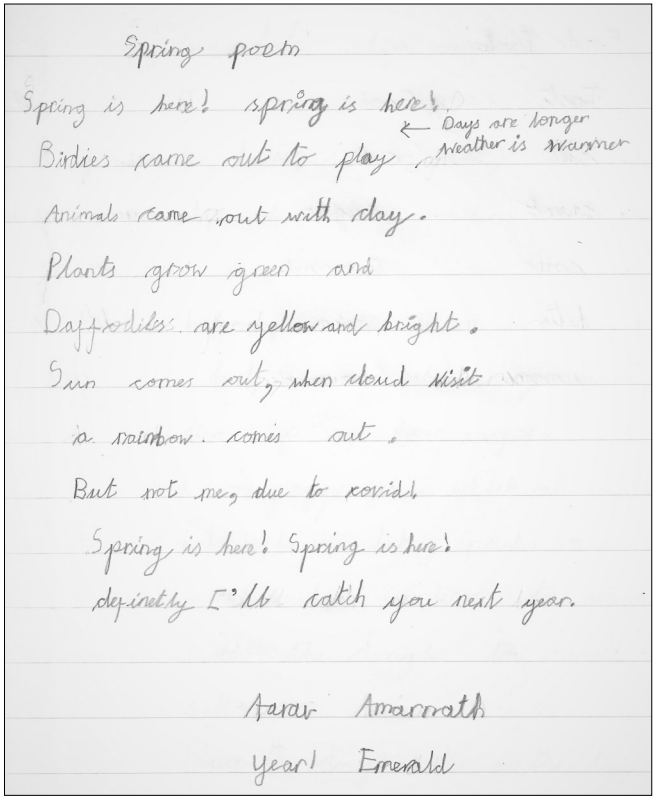 Spring poem
Spring is here! spring is here!
← Days are longer
weather is warmer
Birdies came out to play
Animals came out with day.
Plants grow green and
Daffodiles are yellow and bright.
Sun comes out, when cloud visit
a rainbow comes out.
But not me, due to covid!
Spring is here! Spring is here!
definetly I'll catch you next year.
Aarav Amarnath
Year 1 Emerald